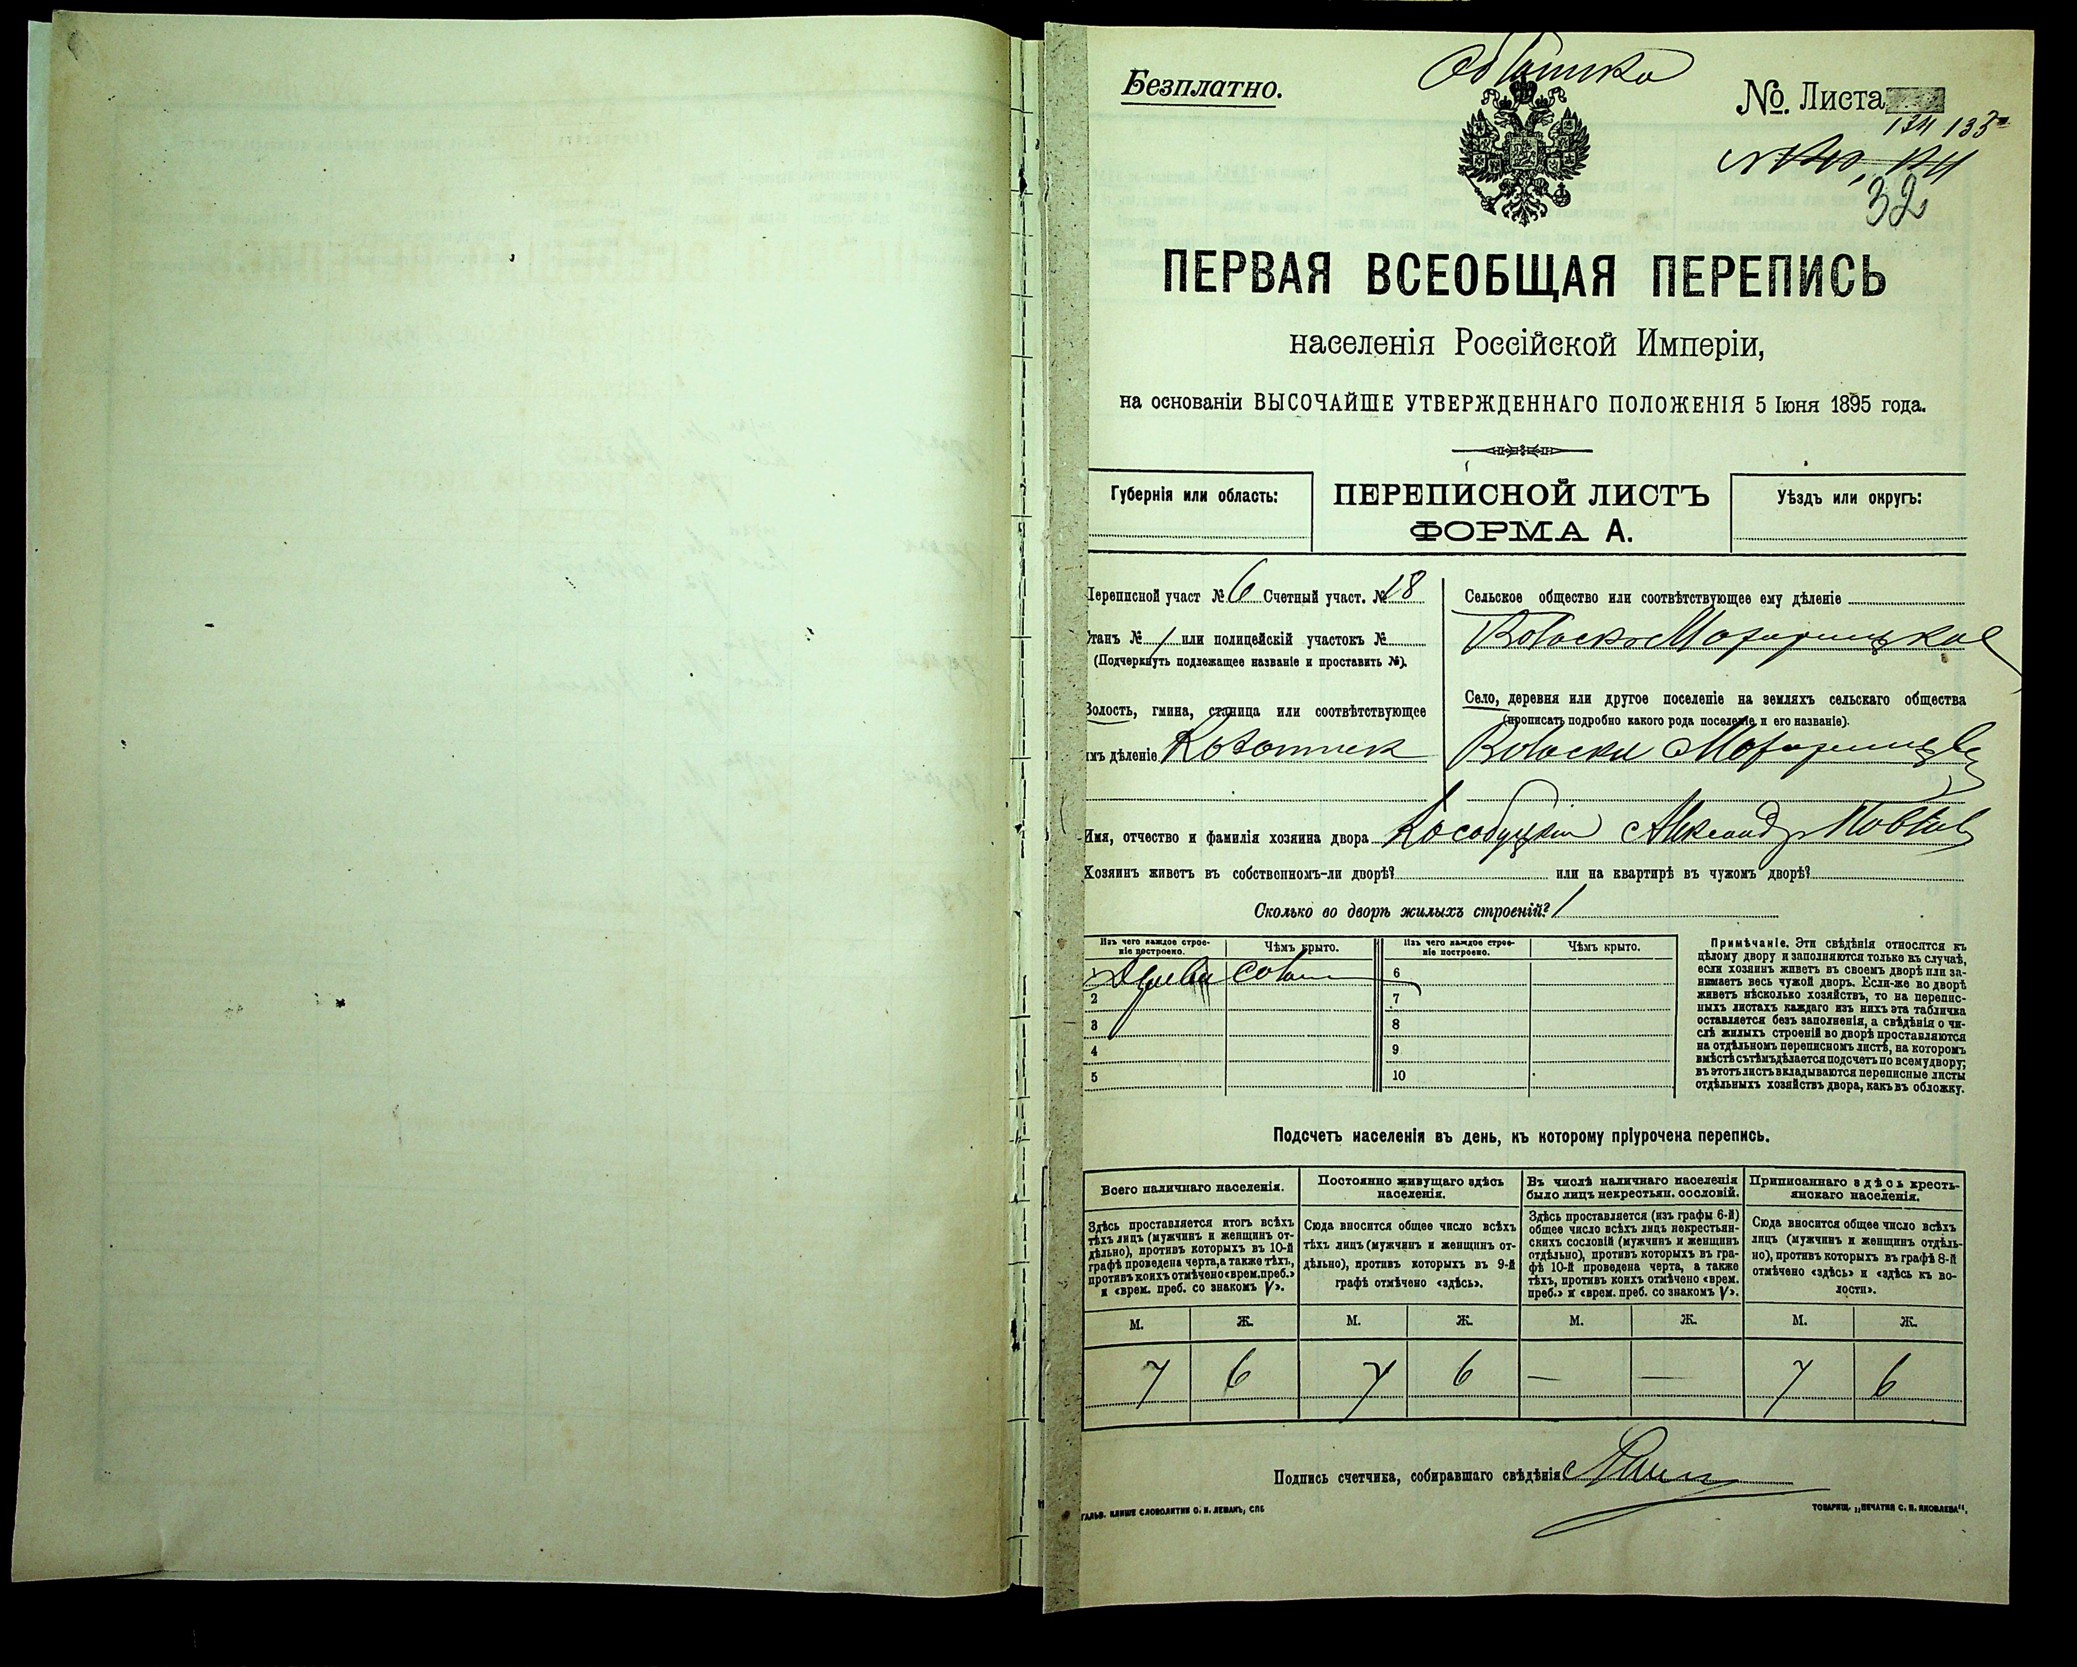 Безплатно.
№ Листа
134 135
32
ПЕРВАЯ ВСЕОБЩАЯ ПЕРЕПИСЬ
населенія Россійской Имперіи,
на основаніи ВЫСОЧАЙШЕ УТВЕРЖДЕННАГО ПОЛОЖЕНІЯ 5 Іюня 1895 года.
Губернія или область:
ПЕРЕПИСНОЙ ЛИСТЪ
ФОРМА А.
Уѣздъ или округъ:
Переписной участ № 6 Счетный участ. № 18
Станъ № 1 или полицейскій участокъ №
(Подчеркнуть подлежащее названіе и проставить №).
Волость, гмина, станица или соотвѣтствующее
имъ дѣленіе
Сельское общество или соотвѣтствующее ему дѣленіе
Село, деревня или другое поселеніе на земляхъ сельскаго общества
(прописать подробно какого рода поселеніе и его названіе).
Имя, отчество и фамилія хозяина двора Александр
Хозяинъ живетъ въ собственномъ-ли дворѣ? или на квартирѣ въ чужомъ дворѣ?
Сколько во дворѣ жилыхъ строеній? 1
Изъ чего каждое строе-
ніе построено.
Чѣмъ крыто.
Изъ чего каждое строе-
ніе построено.
Чѣмъ крыто.
1 6
2 7
3 8
4 9
5 10
Примѣчаніе. Эти свѣдѣнія относятся къ
цѣлому двору и заполняются только въ случаѣ,
если хозяинъ живетъ въ своемъ дворѣ или за-
нимаетъ весь чужой дворъ. Если-же во дворѣ
живетъ нѣсколько хозяйствъ, то на перепис-
ныхъ листахъ каждаго изъ нихъ эта табличка
оставляется безъ заполненія, а свѣдѣнія о чи-
слѣ жилыхъ строеній во дворѣ проставляются
на отдѣльномъ переписномъ листѣ, на которомъ
вмѣстѣ съ тѣмъ дѣлается подсчетъ по всему двору;
въ этотъ листъ вкладываются переписные листы
отдѣльныхъ хозяйствъ двора, какъ въ обложку.
Подсчетъ населенія въ день, къ которому пріурочена перепись.
Всего наличнаго населенія.
Здѣсь проставляется итогъ всѣхъ
тѣхъ лицъ (мужчинъ и женщинъ от-
дѣльно), противъ которыхъ въ 10-й
графѣ проведена черта, а также тѣхъ,
противъ коихъ отмѣчено «врем. преб.»
и «врем. преб. со знакомъ V».
Постоянно живущаго здѣсь
населенія.
Сюда вносится общее число всѣхъ
тѣхъ лицъ (мужчинъ и женщинъ от-
дѣльно), противъ которыхъ въ 9-й
графѣ отмѣчено «здѣсь».
Въ числѣ наличнаго населенія
было лицъ некрестьян. сословій.
Здѣсь проставляется (изъ графы 6-й)
общее число всѣхъ лицъ некрестьян-
скихъ сословій (мужчинъ и женщинъ
отдѣльно), противъ которыхъ въ гра-
фѣ 10-й проведена черта, а также
тѣхъ, противъ коихъ отмѣчено «врем.
преб.» и «врем. преб. со знакомъ V».
Приписаннаго здѣсь кресть-
янскаго населенія.
Сюда вносится общее число всѣхъ
лицъ (мужчинъ и женщинъ отдѣль-
но), противъ которыхъ въ графѣ 8-й
отмѣчено «здѣсь» и «здѣсь къ во-
лости».
М. Ж. М. Ж. М. Ж. М. Ж.
7 6 7 6 — — 7 6
Подпись счетчика, собиравшаго свѣдѣнія
ГАЛЬВ. КЛИШЕ СЛОВОЛИТНИ О. И. ЛЕМАНЪ, СПБ
ТОВАРИЩ. „ПЕЧАТНЯ С. П. ЯКОВЛЕВА“.